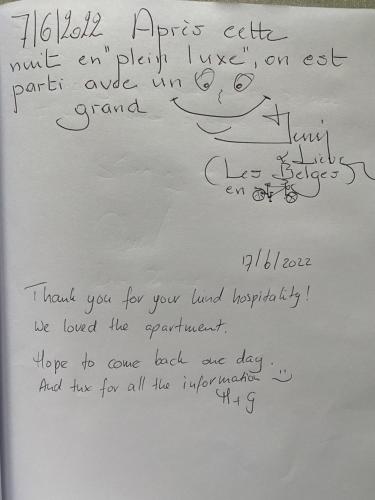 7/6/2022 Après cette
nuit en "plein luxe", on est
parti avde un
grand
(Les Belges)
en
17/6/2022
Thank you for your kind hospitality!
We loved the apartment.
Hope to come back one day.
And thx for all the information
H+G